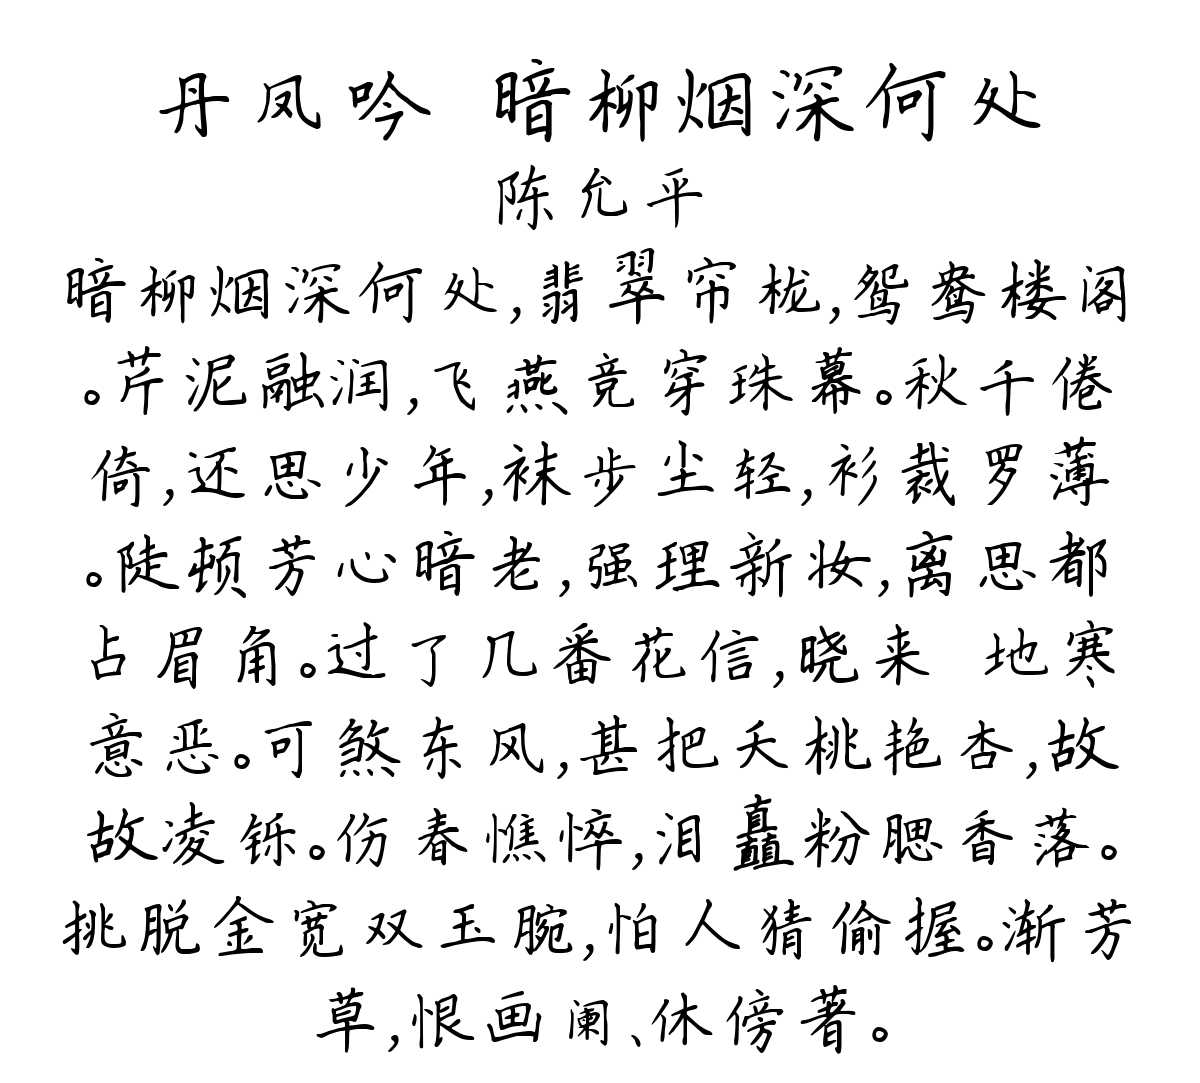 丹凤吟 暗柳烟深何处
陈允平
暗柳烟深何处,翡翠帘栊,鸳鸯楼阁
。芹泥融润,飞燕竞穿珠幕。秋千倦
倚,还思少年,袜步尘轻,衫裁罗薄
。陡顿芳心暗老,强理新妆,离思都
占眉角。过了几番花信,晓来 地寒
意恶。可煞东风,甚把夭桃艳杏,故
故凌铄。伤春憔悴,泪矗粉腮香落。
挑脱金宽双玉腕,怕人猜偷握。渐芳
草,恨画阑、休傍著。